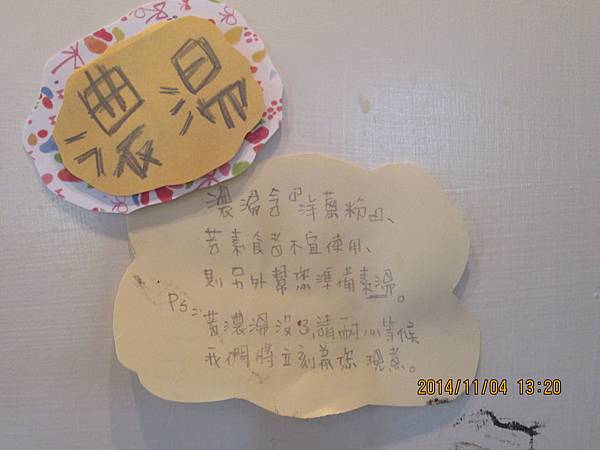 濃湯
濃湯含『洋蔥粉』、
若素食者不宜使用、
則另外幫您準備素湯。
PS:
若濃湯沒了,請耐心等候
我們將立刻幫您現煮。
2014/11/04 13:20